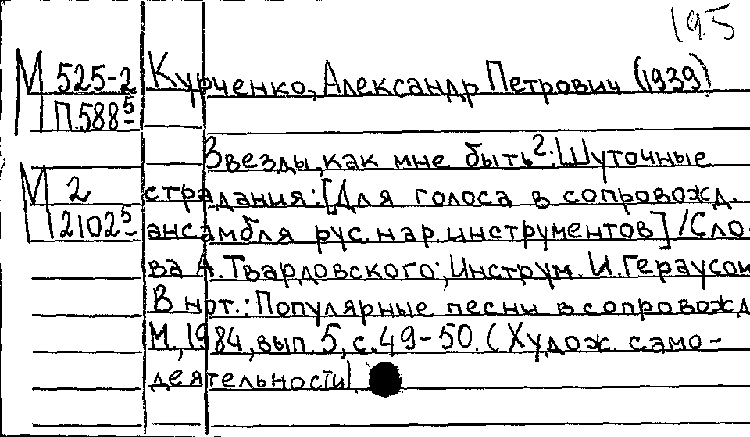 195
М 525-2 Курченко, Александр Петрович (1939)
П.588⁵
Звезды, как мне быть?: Шуточные
М 2 страдания: [Для голоса в сопровожд.
2102⁵ ансамбля рус. нар. инструментов] / Сло-
ва А. Твардовского; Инструм. И. Гераусом
В нот.: Популярные песни в сопровожд
М., 1984, вып. 5, с. 49-50. (Худож. само-
деятельности)